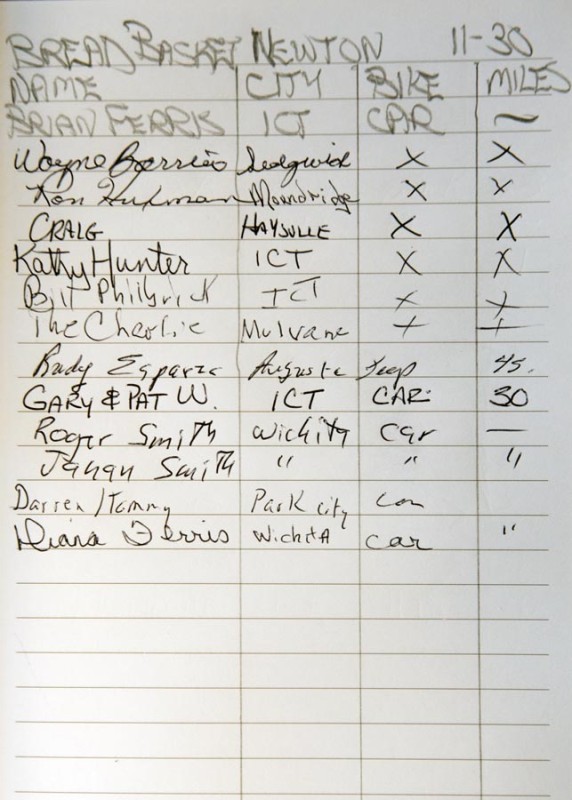 BREAD BASKET NEWTON 11-30
NAME CITY BIKE MILES
BRIAN FERRIS ICT CAR ~
Wayne Sedgwick X X
Ron Moundridge X X
CRAIG HAYSVILLE X X
Kathy Hunter ICT X X
Bill Philbrick ICT X X
The Charlie Mulvane X X
Rudy Esparza Augusta Jeep 45.
GARY & PAT W. ICT CAR 30
Roger Smith Wichita car —
Janan Smith " " "
Darren / Tammy Park city car
Diana Ferris Wichita car "